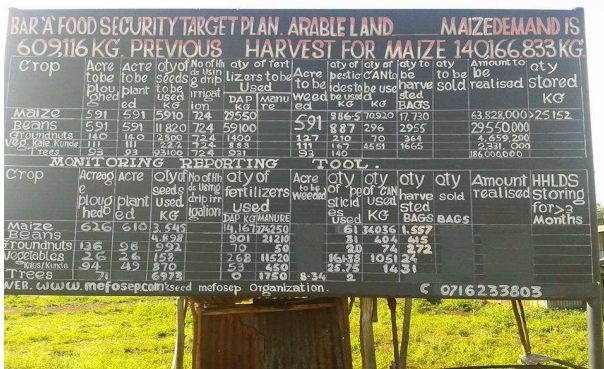 BAR 'A' FOOD SECURITY TARGET PLAN. ARABLE LAND MAIZE DEMAND IS
609,116 KG. PREVIOUS HARVEST FOR MAIZE 140,166.833 KG
Crop Acre to be ploughed Acre to be planted qty of seeds to be used KG No of Hhds using drip irrigation qty of fertilizers to be Used DAP KG Manure Acre to be weeded qty of pesticides to be used qty of CAN to be used KG qty to be harvested BAGS qty to be sold Amount to be realised qty stored KG
Maize 591 591 5910 724 29550 591 886.5 70920 17,730 63,828,000 >25152
Beans 591 591 11820 724 59100 887 296 2955 29,550,000
Groundnuts 140 140 2800 724 1400 127 210 70 364 4,659,200
Veg Kale Kunde 111 111 222 724 888 111 167 4551 1665 2,331,000
Trees 93 93 93100 724 931 93 140 186,000,000
MONITORING REPORTING TOOL.
Crop Acreage ploughed Acre planted qty of seeds used KG No of Hhds using drip irrigation qty of fertilizers used DAP KG MANURE Acre to be weeded qty of pesticides used qty of CAN used KG qty harvested BAGS qty sold BAGS Amount realised HHLDS Storing for >3 Months
Maize 626 610 3.545 14,167 274250 61 34036 1,557
Beans 4.898 901 21210 31 404 415
Groundnuts 136 98 992 70 50 20 74 272
Vegetables 26 26 158 268 11520 16138 1051 24
Kales/Kunde 94 49 870 53 450 25.75 1431
Trees 71 6978 0 1750 8-34 2
WEB. www.mefosep.com seed mefosep organization. C 0716233803